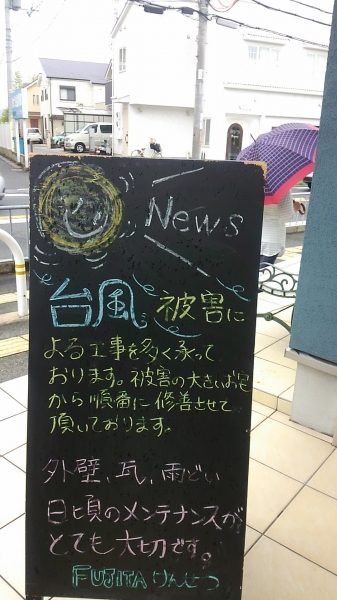 News
台風被害に
よる工事を多く承って
おります。被害の大きいお宅
から順番に修善させて
頂いております。
外壁、瓦、雨どい
日頃のメンテナンスが
とても大切です。
FUJITAりんせつ